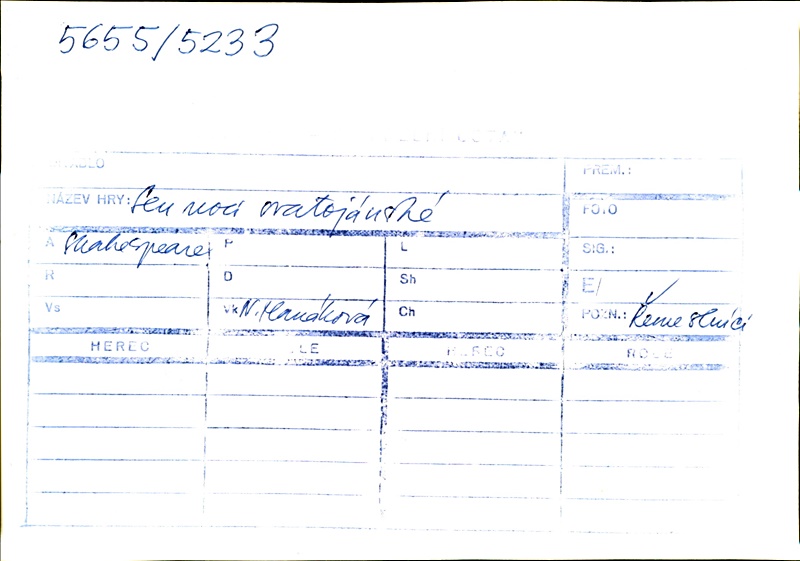 5655/5233
DIVADLO PREM.:
NÁZEV HRY: Sen noci svatojánské FOTO
A Shakespeare P L SIG.:
R D Sh E/
Vs Vk N. Hanáková Ch POZN.: Řemeslníci
HEREC ROLE HEREC ROLE